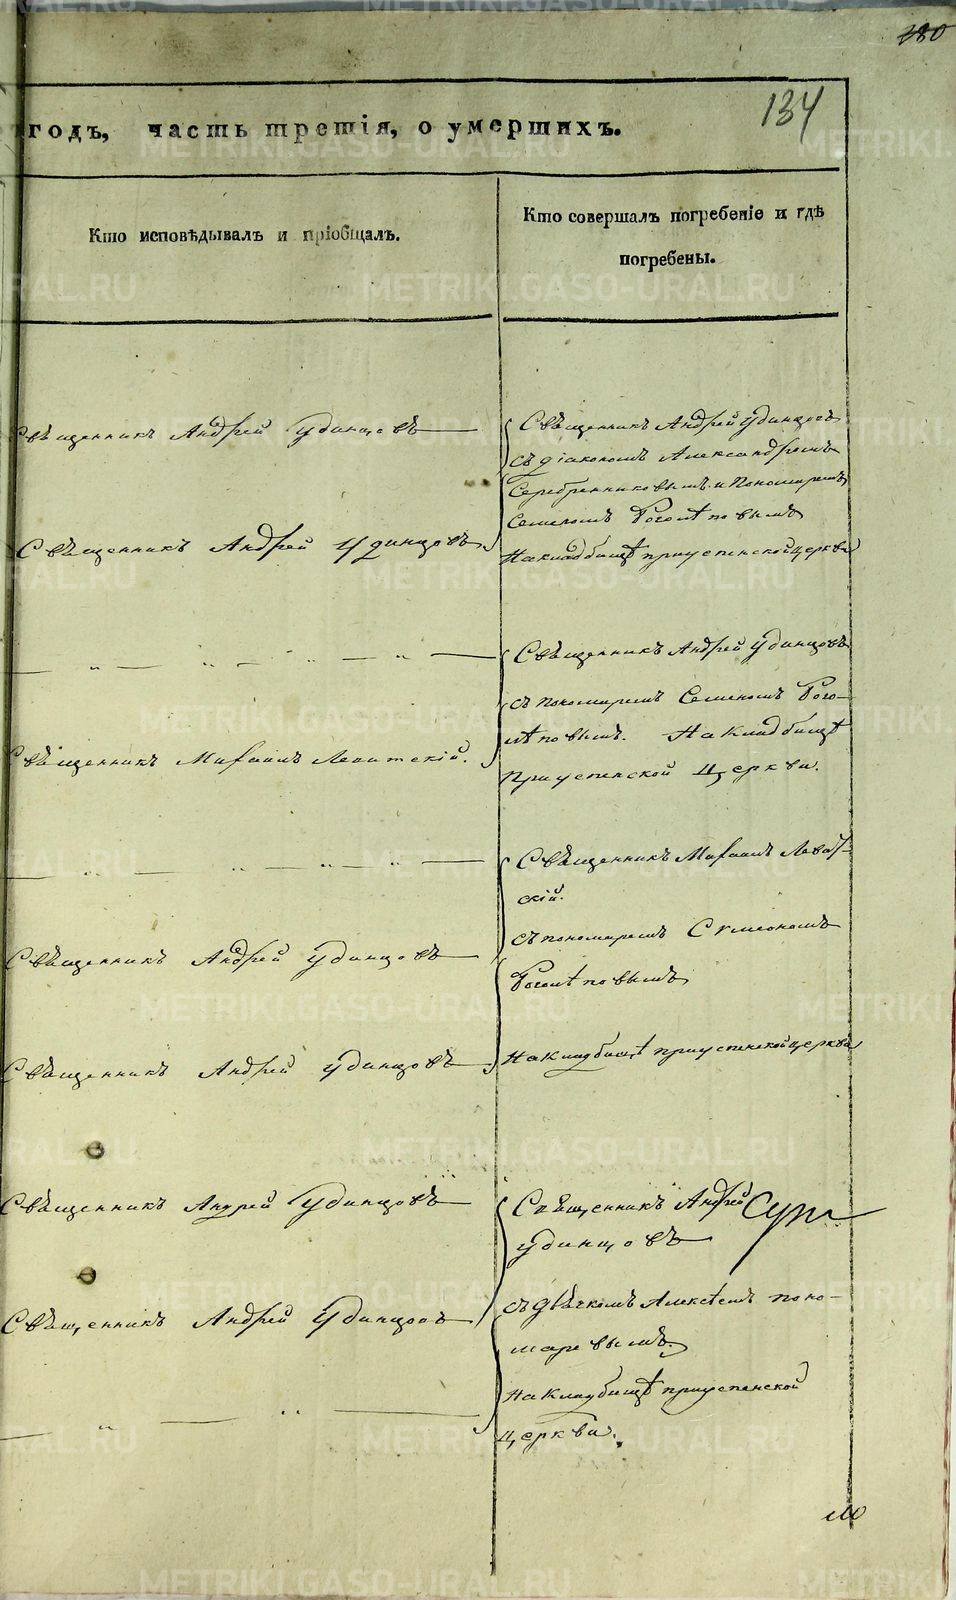 180
134
годъ, часть третія, о умершихъ.
Кто исповѣдывалъ и пріобщалъ.
Кто совершалъ погребеніе и гдѣ
погребены.
Священникъ Андрей Удинцовъ
Священникъ Андрей Удинцовъ
съ діакономъ Александромъ
Серебренниковымъ и Пономаремъ
Семеномъ Боголѣповымъ
Священникъ Андрей Удинцовъ
На кладбищѣ при успенской церкви
— „ — „ — „ — „ —
Священникъ Андрей Удинцовъ
съ пономаремъ Семеномъ Бого-
лѣповымъ. На Кладбищѣ
Священникъ Михаилъ Левитскій.
При успенской Церкви.
— „ — „ — „ — „ —
Священникъ Михаилъ Левит-
скій.
съ пономаремъ Симеономъ
Священникъ Андрей Удинцовъ
Боголѣповымъ
На Кладбищѣ при успенской церкви
Священникъ Андрей Удинцовъ
Священникъ Андрей Удинцовъ
Священникъ Андрей
Удинцовъ
съ дьячкомъ Алексѣемъ поно-
Священникъ Андрей Удинцовъ
маревымъ.
На Кладбищѣ при успенской
— „ — „ —
церкви.
METRIKI.GASO-URAL.RU